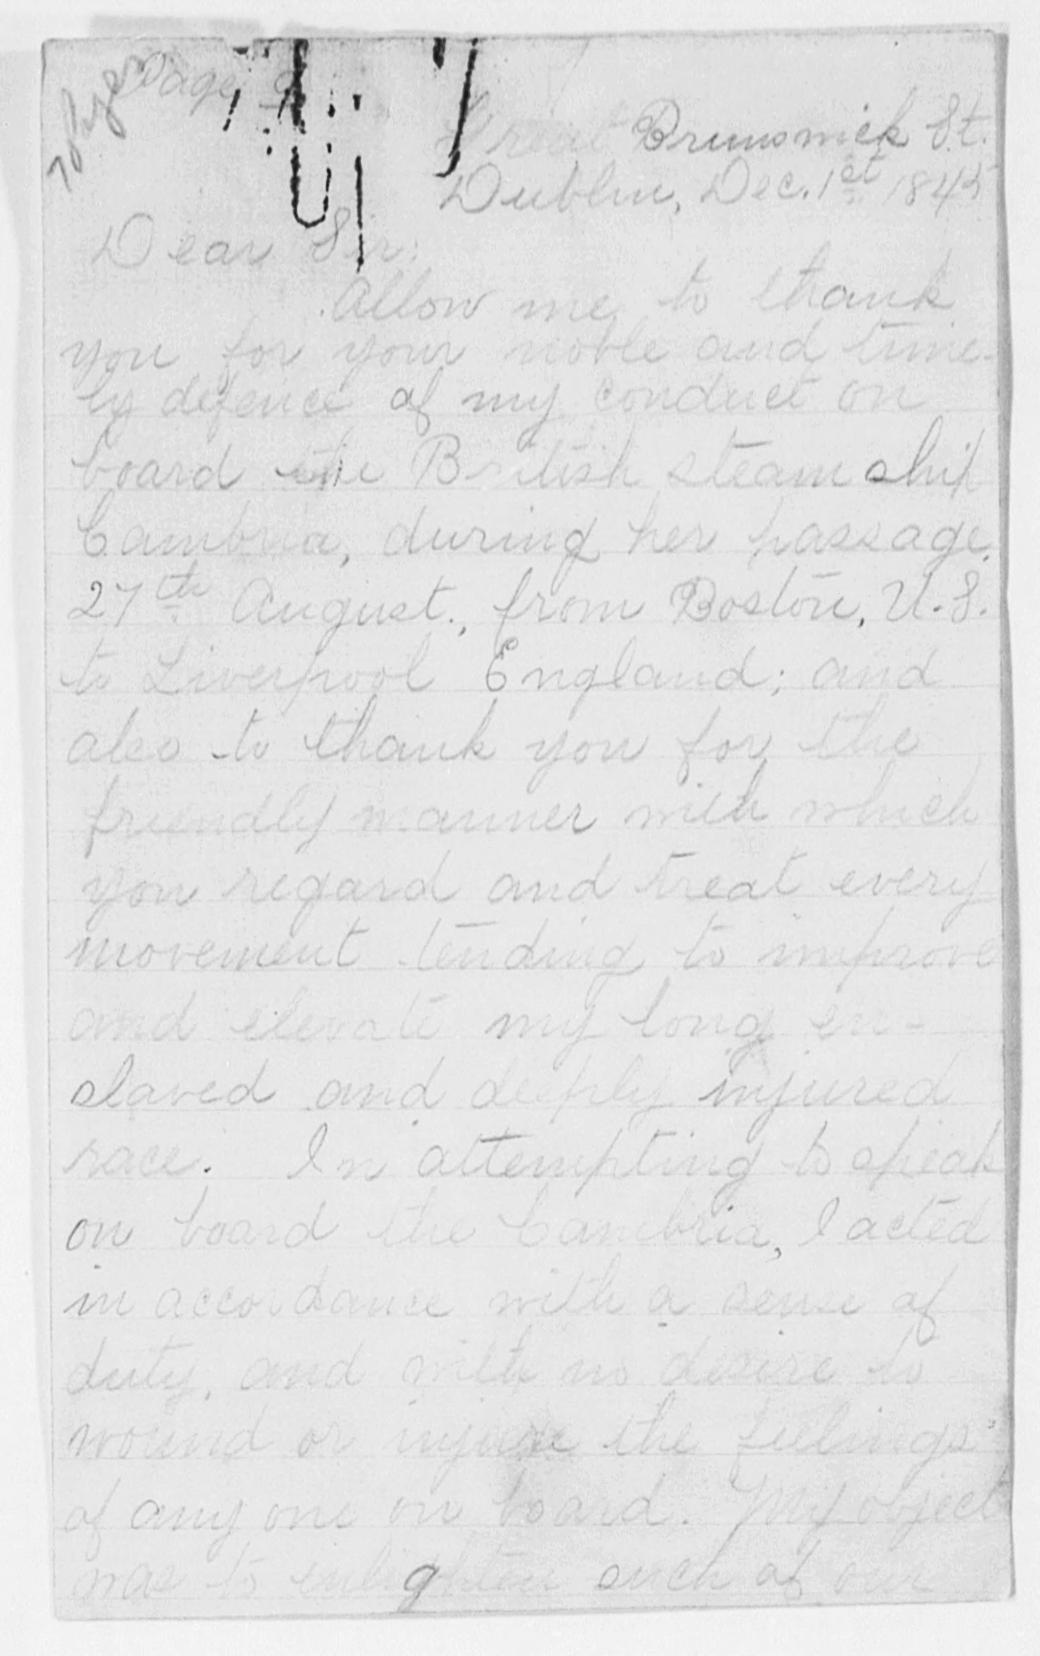 Page 9
Great Brunswick St.
Dublin, Dec. 1st 1845
Dear Sir:
Allow me to thank
you for your noble and time-
ly defence of my conduct on
board the British steam ship
Cambria, during her passage,
27th August., from Boston, U.S.
to Liverpool England; and
also to thank you for the
friendly manner with which
you regard and treat every
movement tending to improve
and elevate my long en-
slaved and deeply injured
race. In attempting to speak
on board the Cambria, I acted
in accordance with a sense of
duty, and with no desire to
wound or injure the feelings
of any one on board. My object
was to enlighten such of our